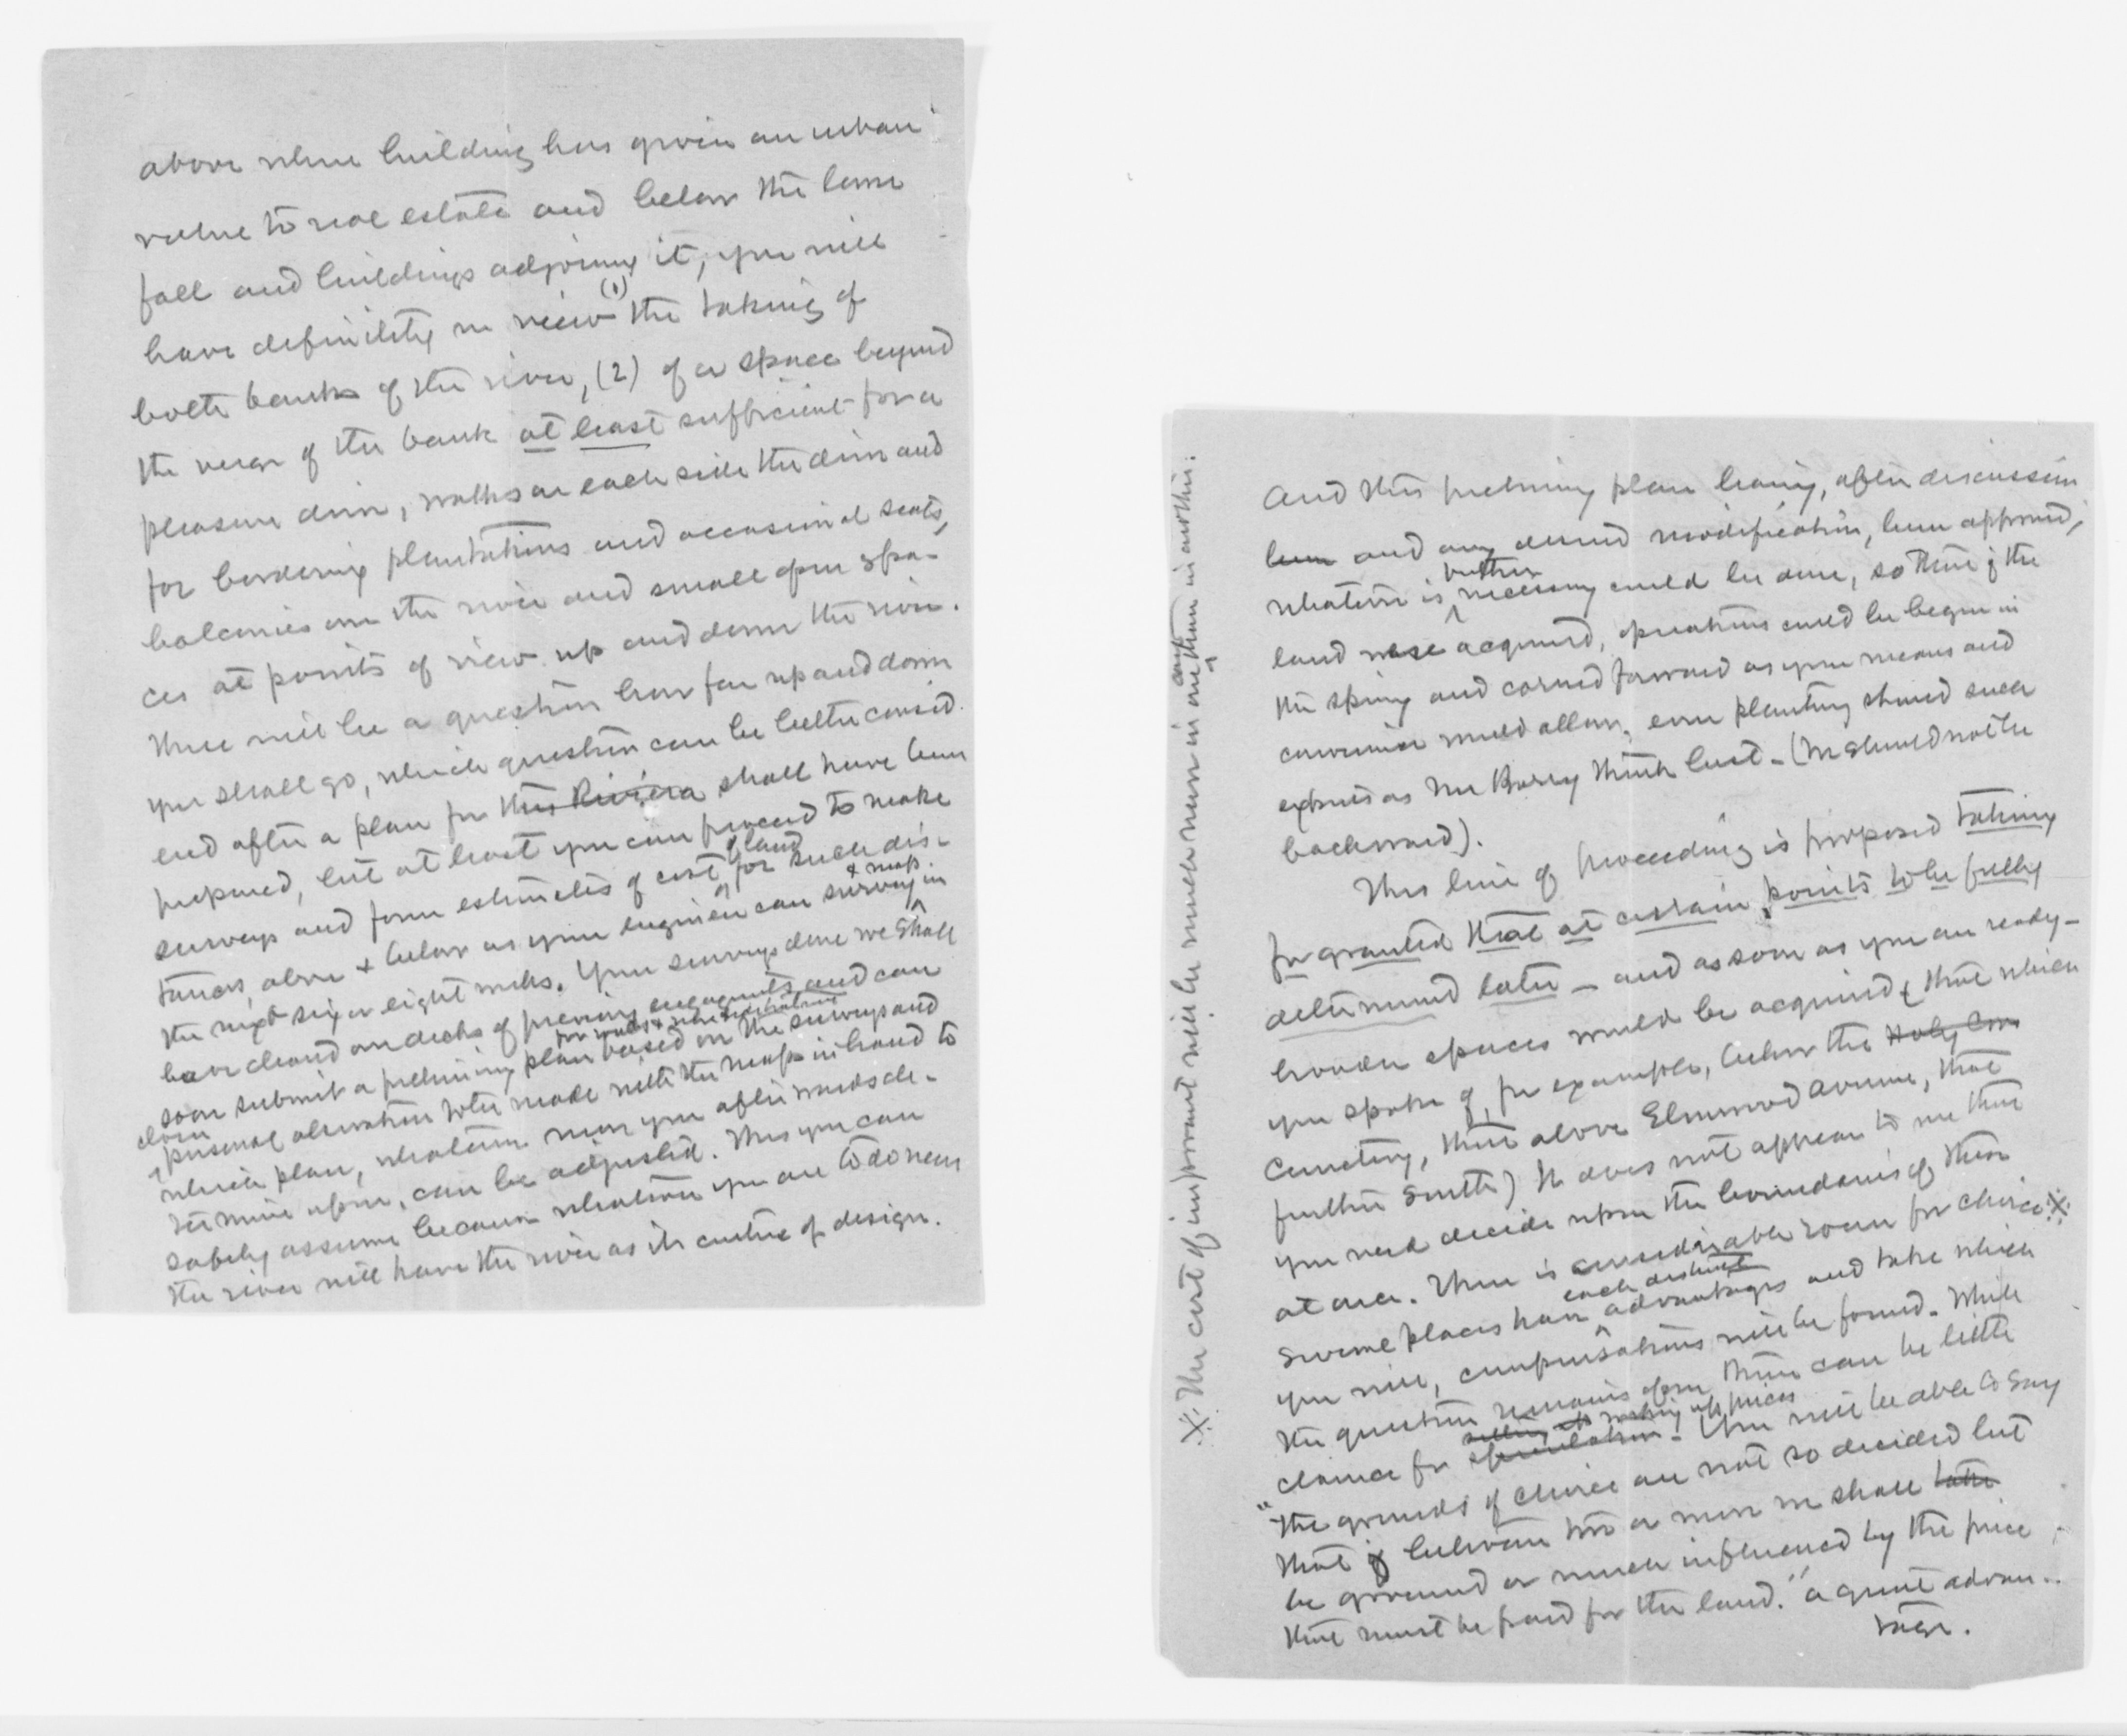 above where building has given an urban
value to real estate and below the lower
fall and buildings adjoining it, you will
have definitely in view (1) the taking of
both banks of the river, (2) of a space beyond
the verge of the bank at least sufficient for a
pleasure drive, walks on each side the drive and
for bordering plantations and occasional seats,
balconies over the river and small open spa-
ces at points of view up and down the river.
There will be a question how far up and down
you shall go, which question can be better consid-
ered after a plan for this Riviera shall have been
prepared, but at least you can proceed to make
surveys and form estimates of cost of land for such dis-
tances, above & below as your engineer can survey & map in
the next six or eight weeks. Your surveys done we shall
have cleared our decks of previous engagements and can
soon submit a preliminy plan for walks & based on the surveys and
closer personal observation to be made with the maps in hand to
which plan, whatever more you afterwards de-
termine upon, can be adjusted. This you can
safely assume because whatever you are to do near
the river will have the river as its centre of design.
And this preliminy plan having, after discussion
been and any desired modification, been approved,
whatever is further necessary could be done, so that if the
land were acquired, operations could be begun in
the spring and carried forward as your means and
convenience would allow, even planting should such
experts as Mr Barry think best - (We should not be
backward).
This line of proceeding is proposed taking
for granted that at certain points to be fully
determined later - and as soon as you are ready -
broader spaces would be acquired (that which
you spoke of, for example, below the Holy Cross
Cemetery, that above Elmwood Avenue, that
further South) It does not appear to me that
you need decide upon the boundaries of these
at once. There is considerable room for choice ※
Several places have each distinct advantages and take which
you will, compensations will be found. While
the question remains open there can be little
chance for speculation putting up prices - You will be able to say
"the grounds of choice are not so decided but
that if between two or more we shall
be governed or much influenced by the price
that must be paid for the land." a great advan-
tage.
※ The cost of improvement will be much more in one case than in another.